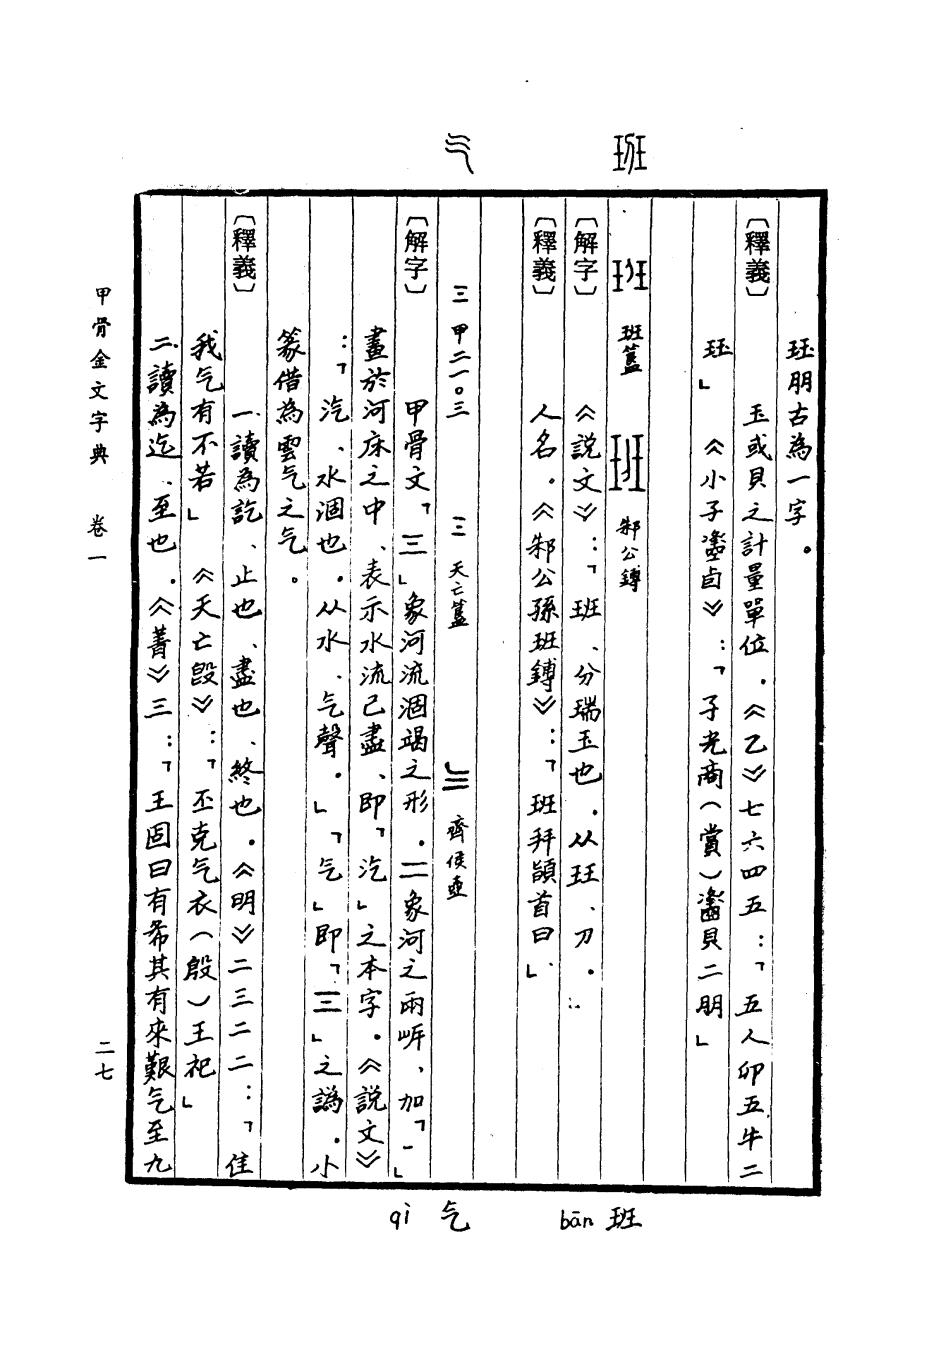 气 班
珏朋古為一字。
〔釋義〕 玉或貝之計量單位．《乙》七六四五：「五人卯五牛二
珏」 《小子卣》：「子光商（賞）貝二朋」
班 班簋 班 邾公鎛
〔解字〕 《說文》：「班、分瑞玉也．从玨、刀．
〔釋義〕 人名．《邾公孫班鎛》：「班拜頴首曰」
三 甲二一〇三 三 天亡簋 齊侯壺
〔解字〕 甲骨文「三」象河流涸竭之形．二象河之兩岸、加「一」
畫於河床之中、表示水流已盡、即「汔」之本字．《說文》
：「汔、水涸也．从水、气聲．」「气」即「三」之譌．小
篆借為雲气之气。
〔釋義〕 一、讀為訖、止也、盡也、終也．《明》二三二二：「隹
我气有不若」 《天亡𣪘》：「丕克气衣（殷）王祀」
二、讀為迄、至也．《菁》三：「王固曰有希其有來艱气至九
qì 气 bān 班
甲骨金文字典 卷一 二七